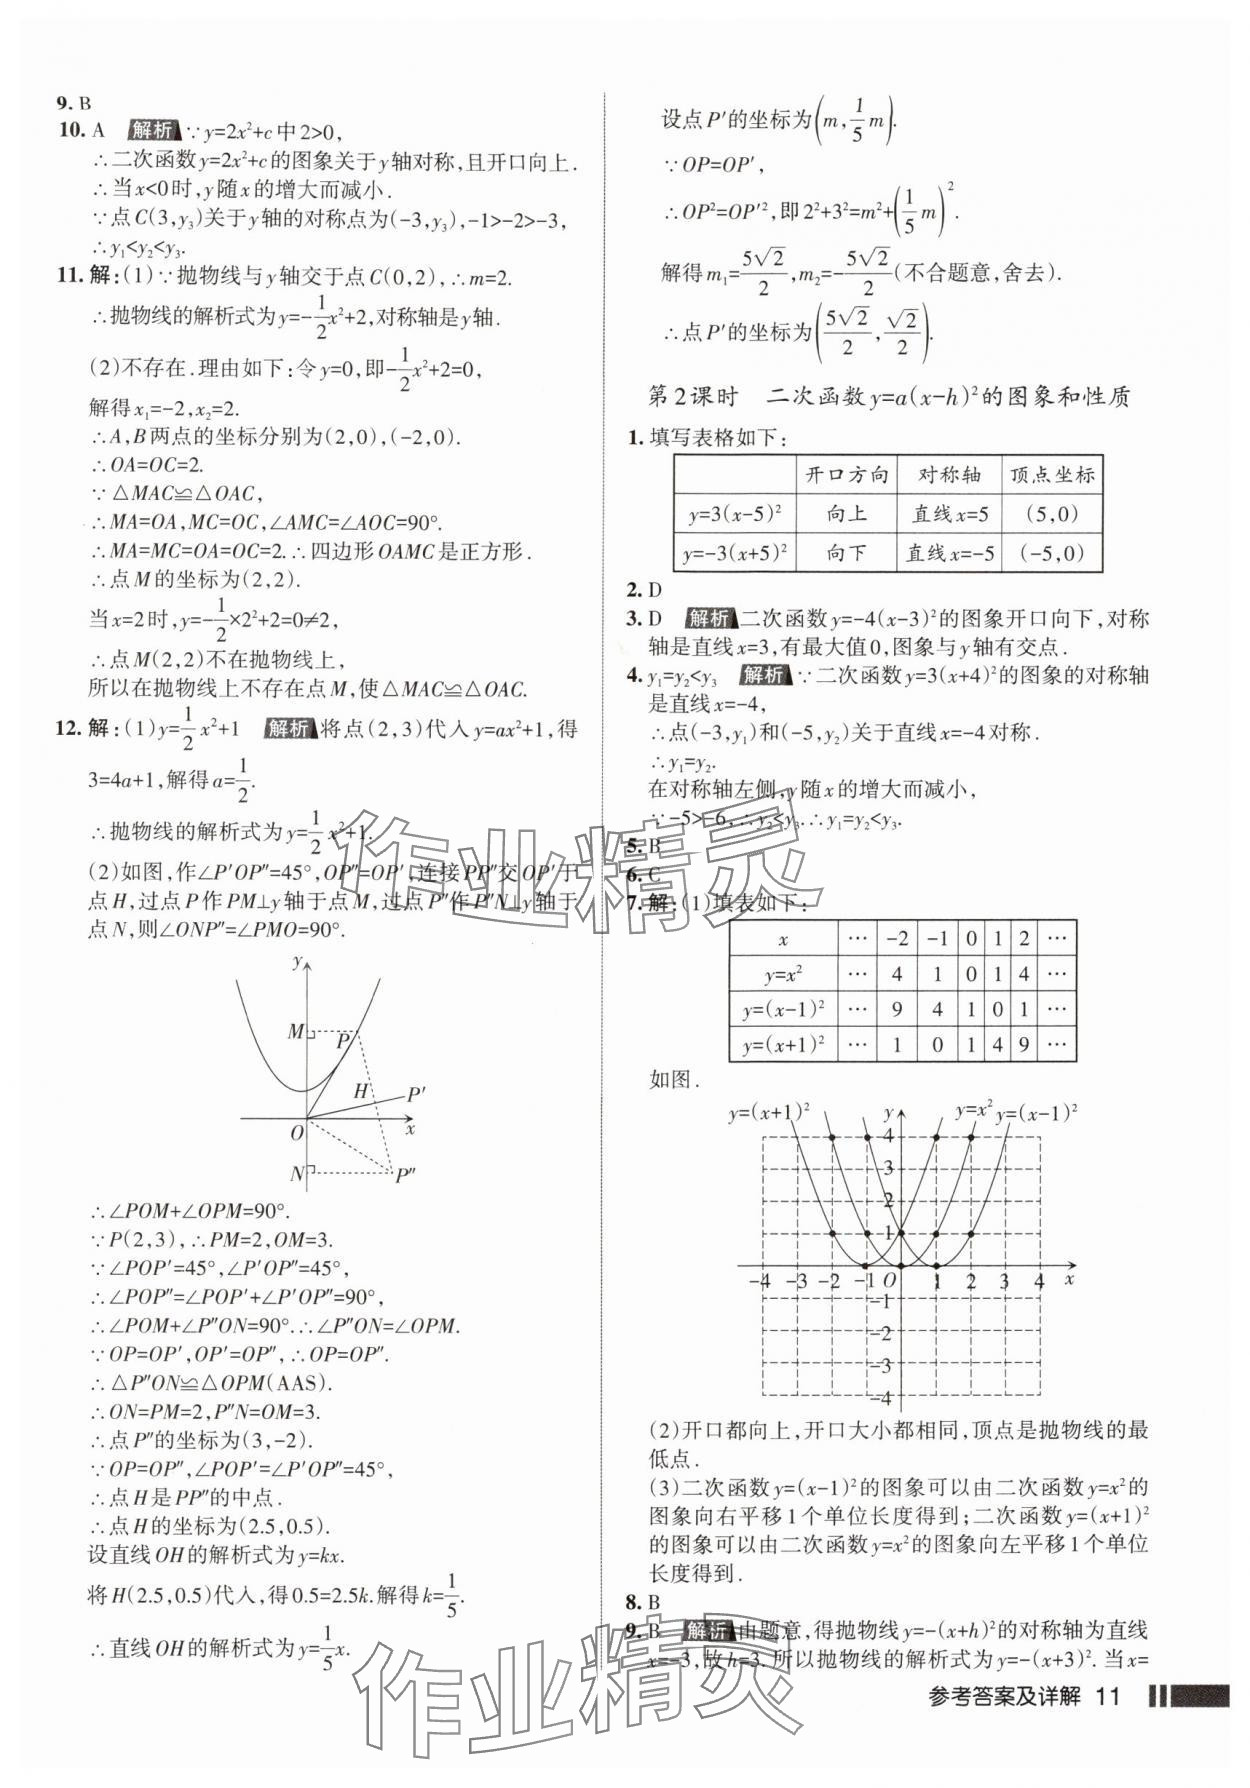 9. B
10. A 解析 ∵y=2x²+c中2>0,
∴二次函数y=2x²+c的图象关于y轴对称,且开口向上.
∴当x<0时,y随x的增大而减小.
∵点C(3,y₃)关于y轴的对称点为(-3,y₃),-1>-2>-3,
∴y₁<y₂<y₃.
11. 解:(1)∵抛物线与y轴交于点C(0,2),∴m=2.
∴抛物线的解析式为y=-1/2x²+2,对称轴是y轴.
(2)不存在.理由如下:令y=0,即-1/2x²+2=0,
解得x₁=-2,x₂=2.
∴A,B两点的坐标分别为(2,0),(-2,0).
∴OA=OC=2.
∵△MAC≌△OAC,
∴MA=OA,MC=OC,∠AMC=∠AOC=90°.
∴MA=MC=OA=OC=2.∴四边形OAMC是正方形.
∴点M的坐标为(2,2).
当x=2时,y=-1/2×2²+2=0≠2,
∴点M(2,2)不在抛物线上,
所以在抛物线上不存在点M,使△MAC≌△OAC.
12. 解:(1)y=1/2x²+1 解析 将点(2,3)代入y=ax²+1,得
3=4a+1,解得a=1/2.
∴抛物线的解析式为y=1/2x²+1.
(2)如图,作∠P′OP″=45°,OP″=OP′,连接PP″交OP′于
点H,过点P作PM⊥y轴于点M,过点P″作P″N⊥y轴于
点N,则∠ONP″=∠PMO=90°.
y
M
P
H
P′
O
x
N
P″
∴∠POM+∠OPM=90°.
∵P(2,3),∴PM=2,OM=3.
∵∠POP′=45°,∠P′OP″=45°,
∴∠POP″=∠POP′+∠P′OP″=90°,
∴∠POM+∠P″ON=90°.∴∠P″ON=∠OPM.
∵OP=OP′,OP′=OP″,∴OP=OP″.
∴△P″ON≌△OPM(AAS).
∴ON=PM=2,P″N=OM=3.
∴点P″的坐标为(3,-2).
∵OP=OP″,∠POP′=∠P′OP″=45°,
∴点H是PP″的中点.
∴点H的坐标为(2.5,0.5).
设直线OH的解析式为y=kx.
将H(2.5,0.5)代入,得0.5=2.5k.解得k=1/5.
∴直线OH的解析式为y=1/5x.
设点P′的坐标为(m,1/5m).
∵OP=OP′,
∴OP²=OP′²,即2²+3²=m²+(1/5m)².
解得m₁=5√2/2,m₂=-5√2/2(不合题意,舍去).
∴点P′的坐标为(5√2/2,√2/2).
第2课时 二次函数y=a(x-h)²的图象和性质
1. 填写表格如下:
开口方向 对称轴 顶点坐标
y=3(x-5)² 向上 直线x=5 (5,0)
y=-3(x+5)² 向下 直线x=-5 (-5,0)
2. D
3. D 解析 二次函数y=-4(x-3)²的图象开口向下,对称
轴是直线x=3,有最大值0,图象与y轴有交点.
4. y₁=y₂<y₃ 解析 ∵二次函数y=3(x+4)²的图象的对称轴
是直线x=-4,
∴点(-3,y₁)和(-5,y₂)关于直线x=-4对称.
∴y₁=y₂.
在对称轴左侧,y随x的增大而减小,
∵-5>-6,∴y₂<y₃.∴y₁=y₂<y₃.
5. B
6. C
7. 解:(1)填表如下:
x … -2 -1 0 1 2 …
y=x² … 4 1 0 1 4 …
y=(x-1)² … 9 4 1 0 1 …
y=(x+1)² … 1 0 1 4 9 …
如图.
y=(x+1)² y y=x² y=(x-1)²
4
3
2
1
-4 -3 -2 -1 O 1 2 3 4 x
-1
-2
-3
-4
(2)开口都向上,开口大小都相同,顶点是抛物线的最
低点.
(3)二次函数y=(x-1)²的图象可以由二次函数y=x²的
图象向右平移1个单位长度得到;二次函数y=(x+1)²
的图象可以由二次函数y=x²的图象向左平移1个单位
长度得到.
8. B
9. B 解析 由题意,得抛物线y=-(x+h)²的对称轴为直线
x=-3,故h=3.所以抛物线的解析式为y=-(x+3)².当x=
参考答案及详解 11
作业精灵
作业精灵